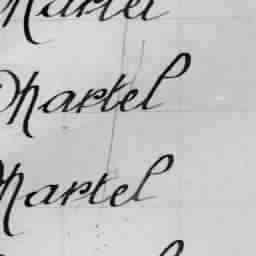 Martel
Martel
Martel